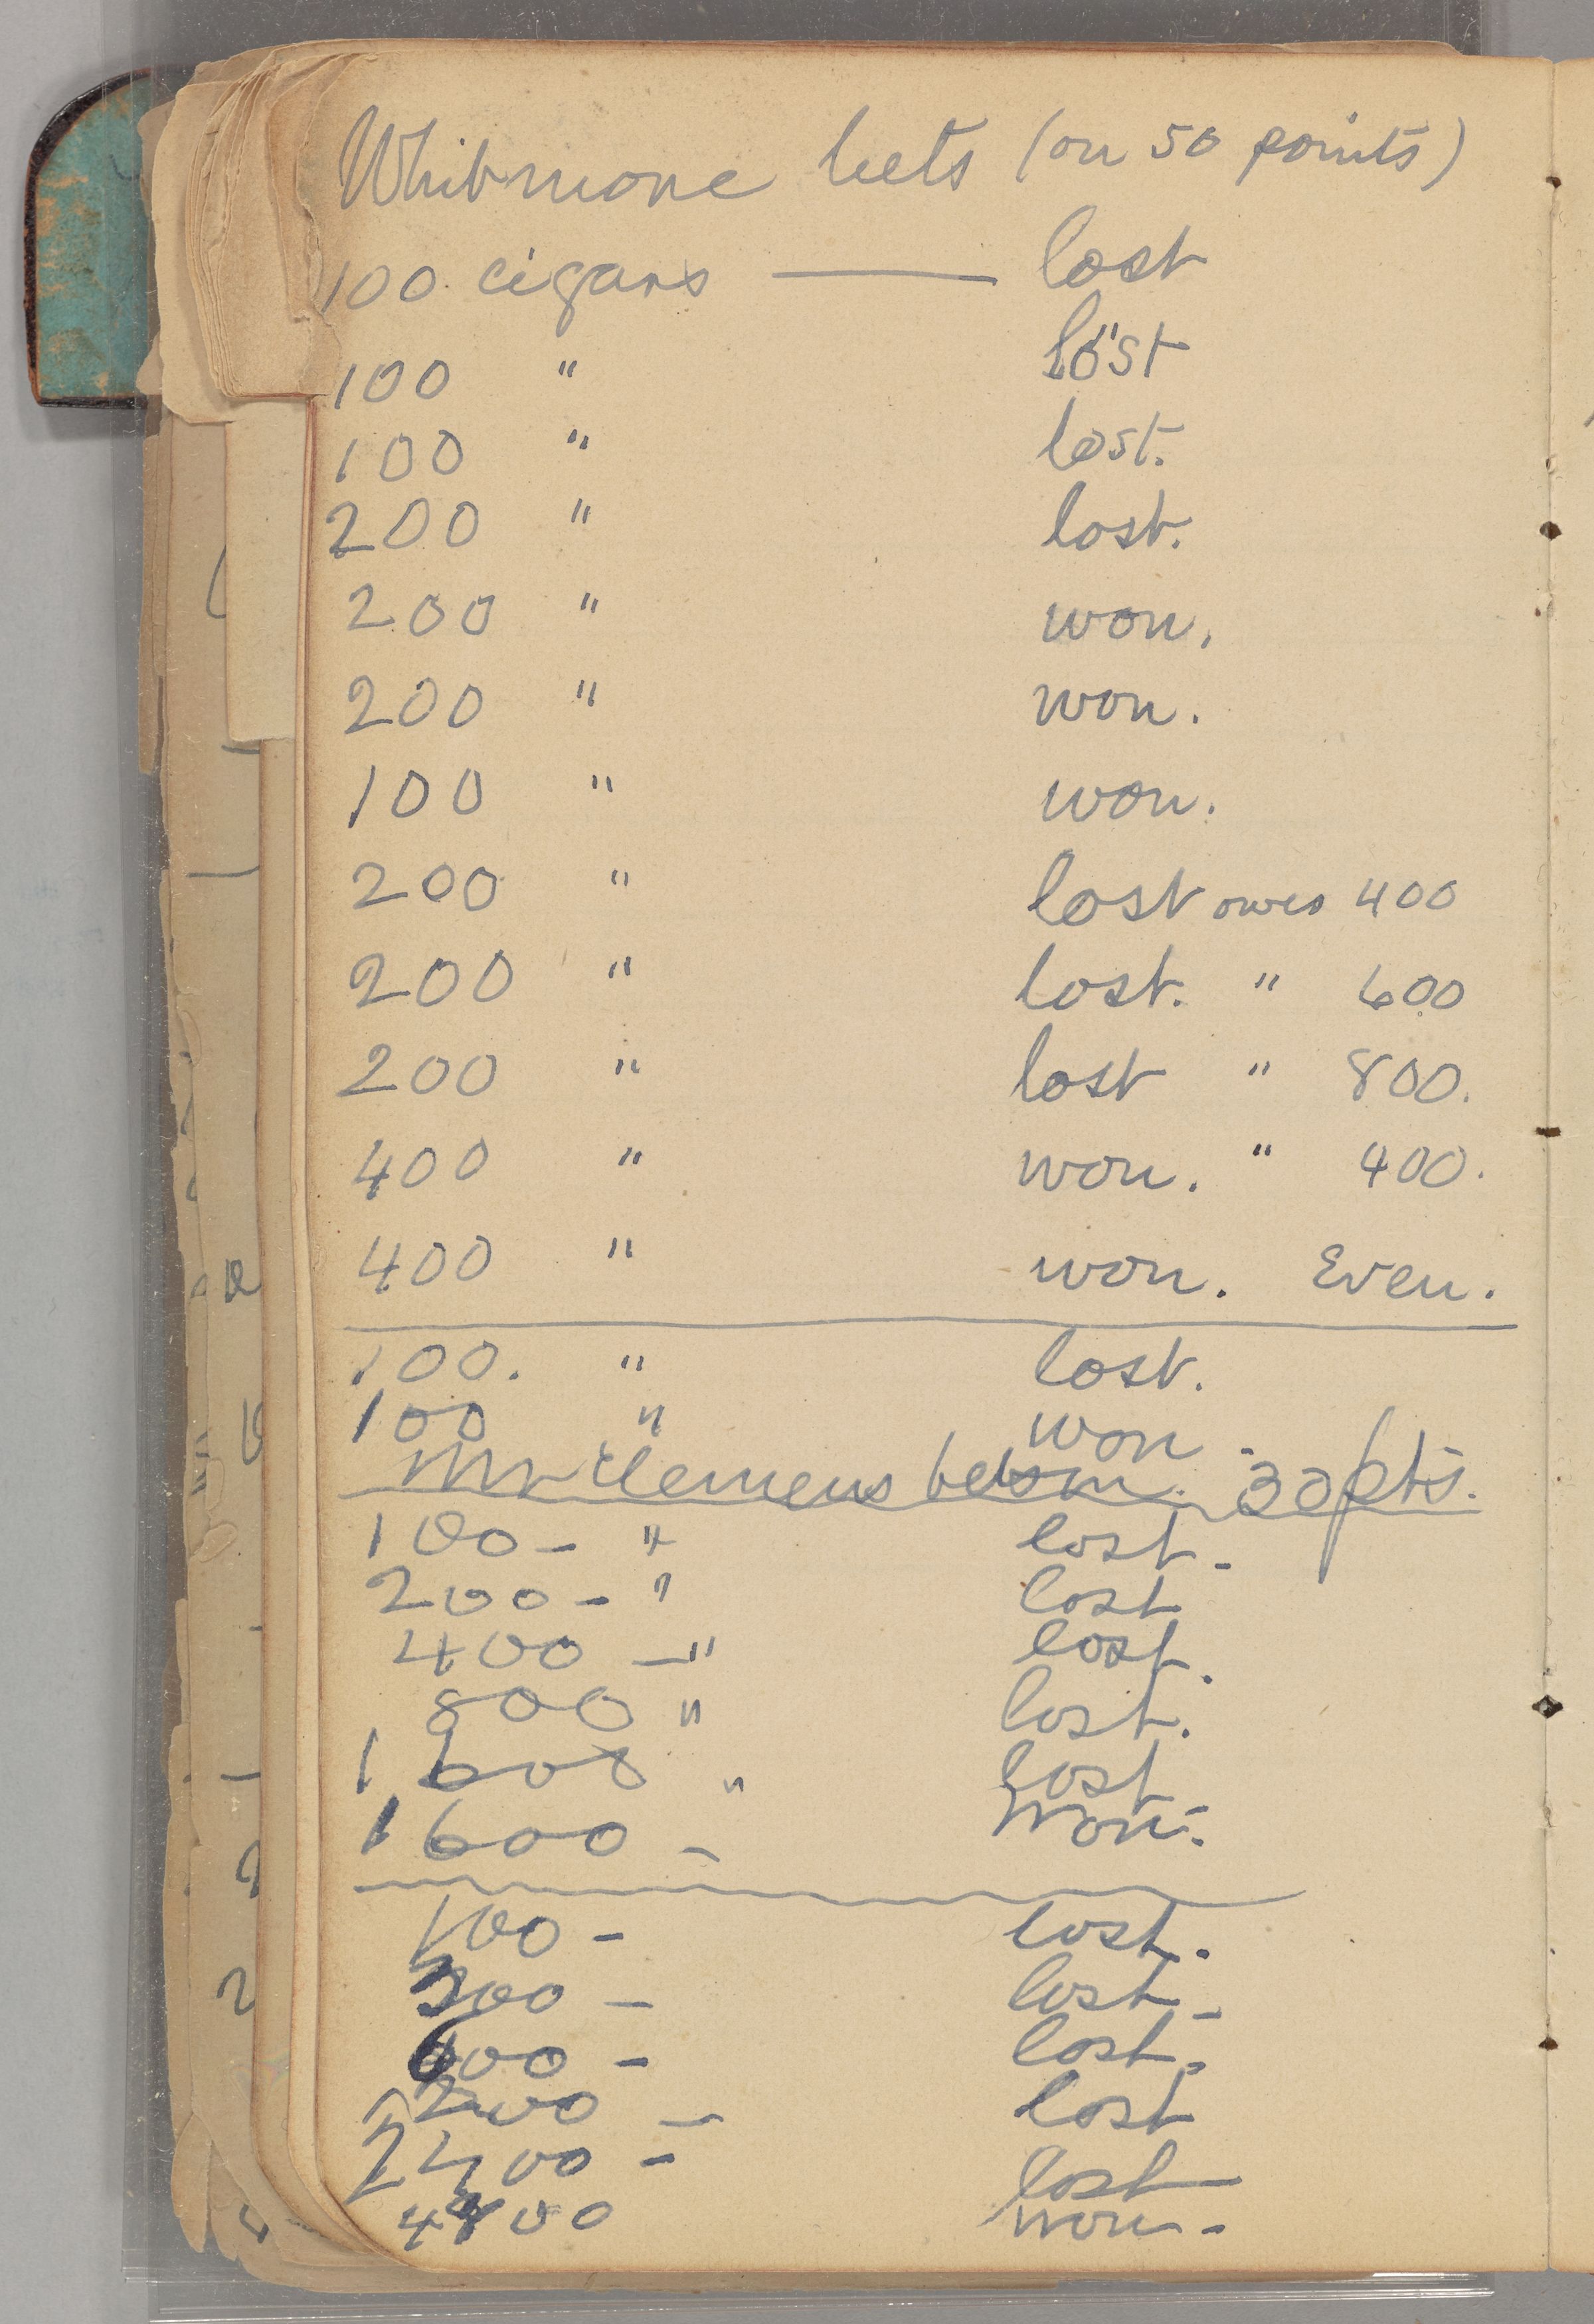 Whitmore bets (on 50 points)
100 cigars — lost
100 " lost
100 " lost.
200 " lost.
200 " won.
200 " won.
100 " won.
200 " lost owes 400
200 " lost. " 600
200 " lost " 800.
400 " won. " 400.
400 " won. Even.
100. " lost.
100 " won.
Mr Clemens bets on 30 pts.
100 - " lost -
200 - " lost
400 - " lost.
800 " lost.
1600 " lost
1600 - won.
100 - lost.
300 - lost -
600 - lost.
1200 - lost
2400 - lost
won -